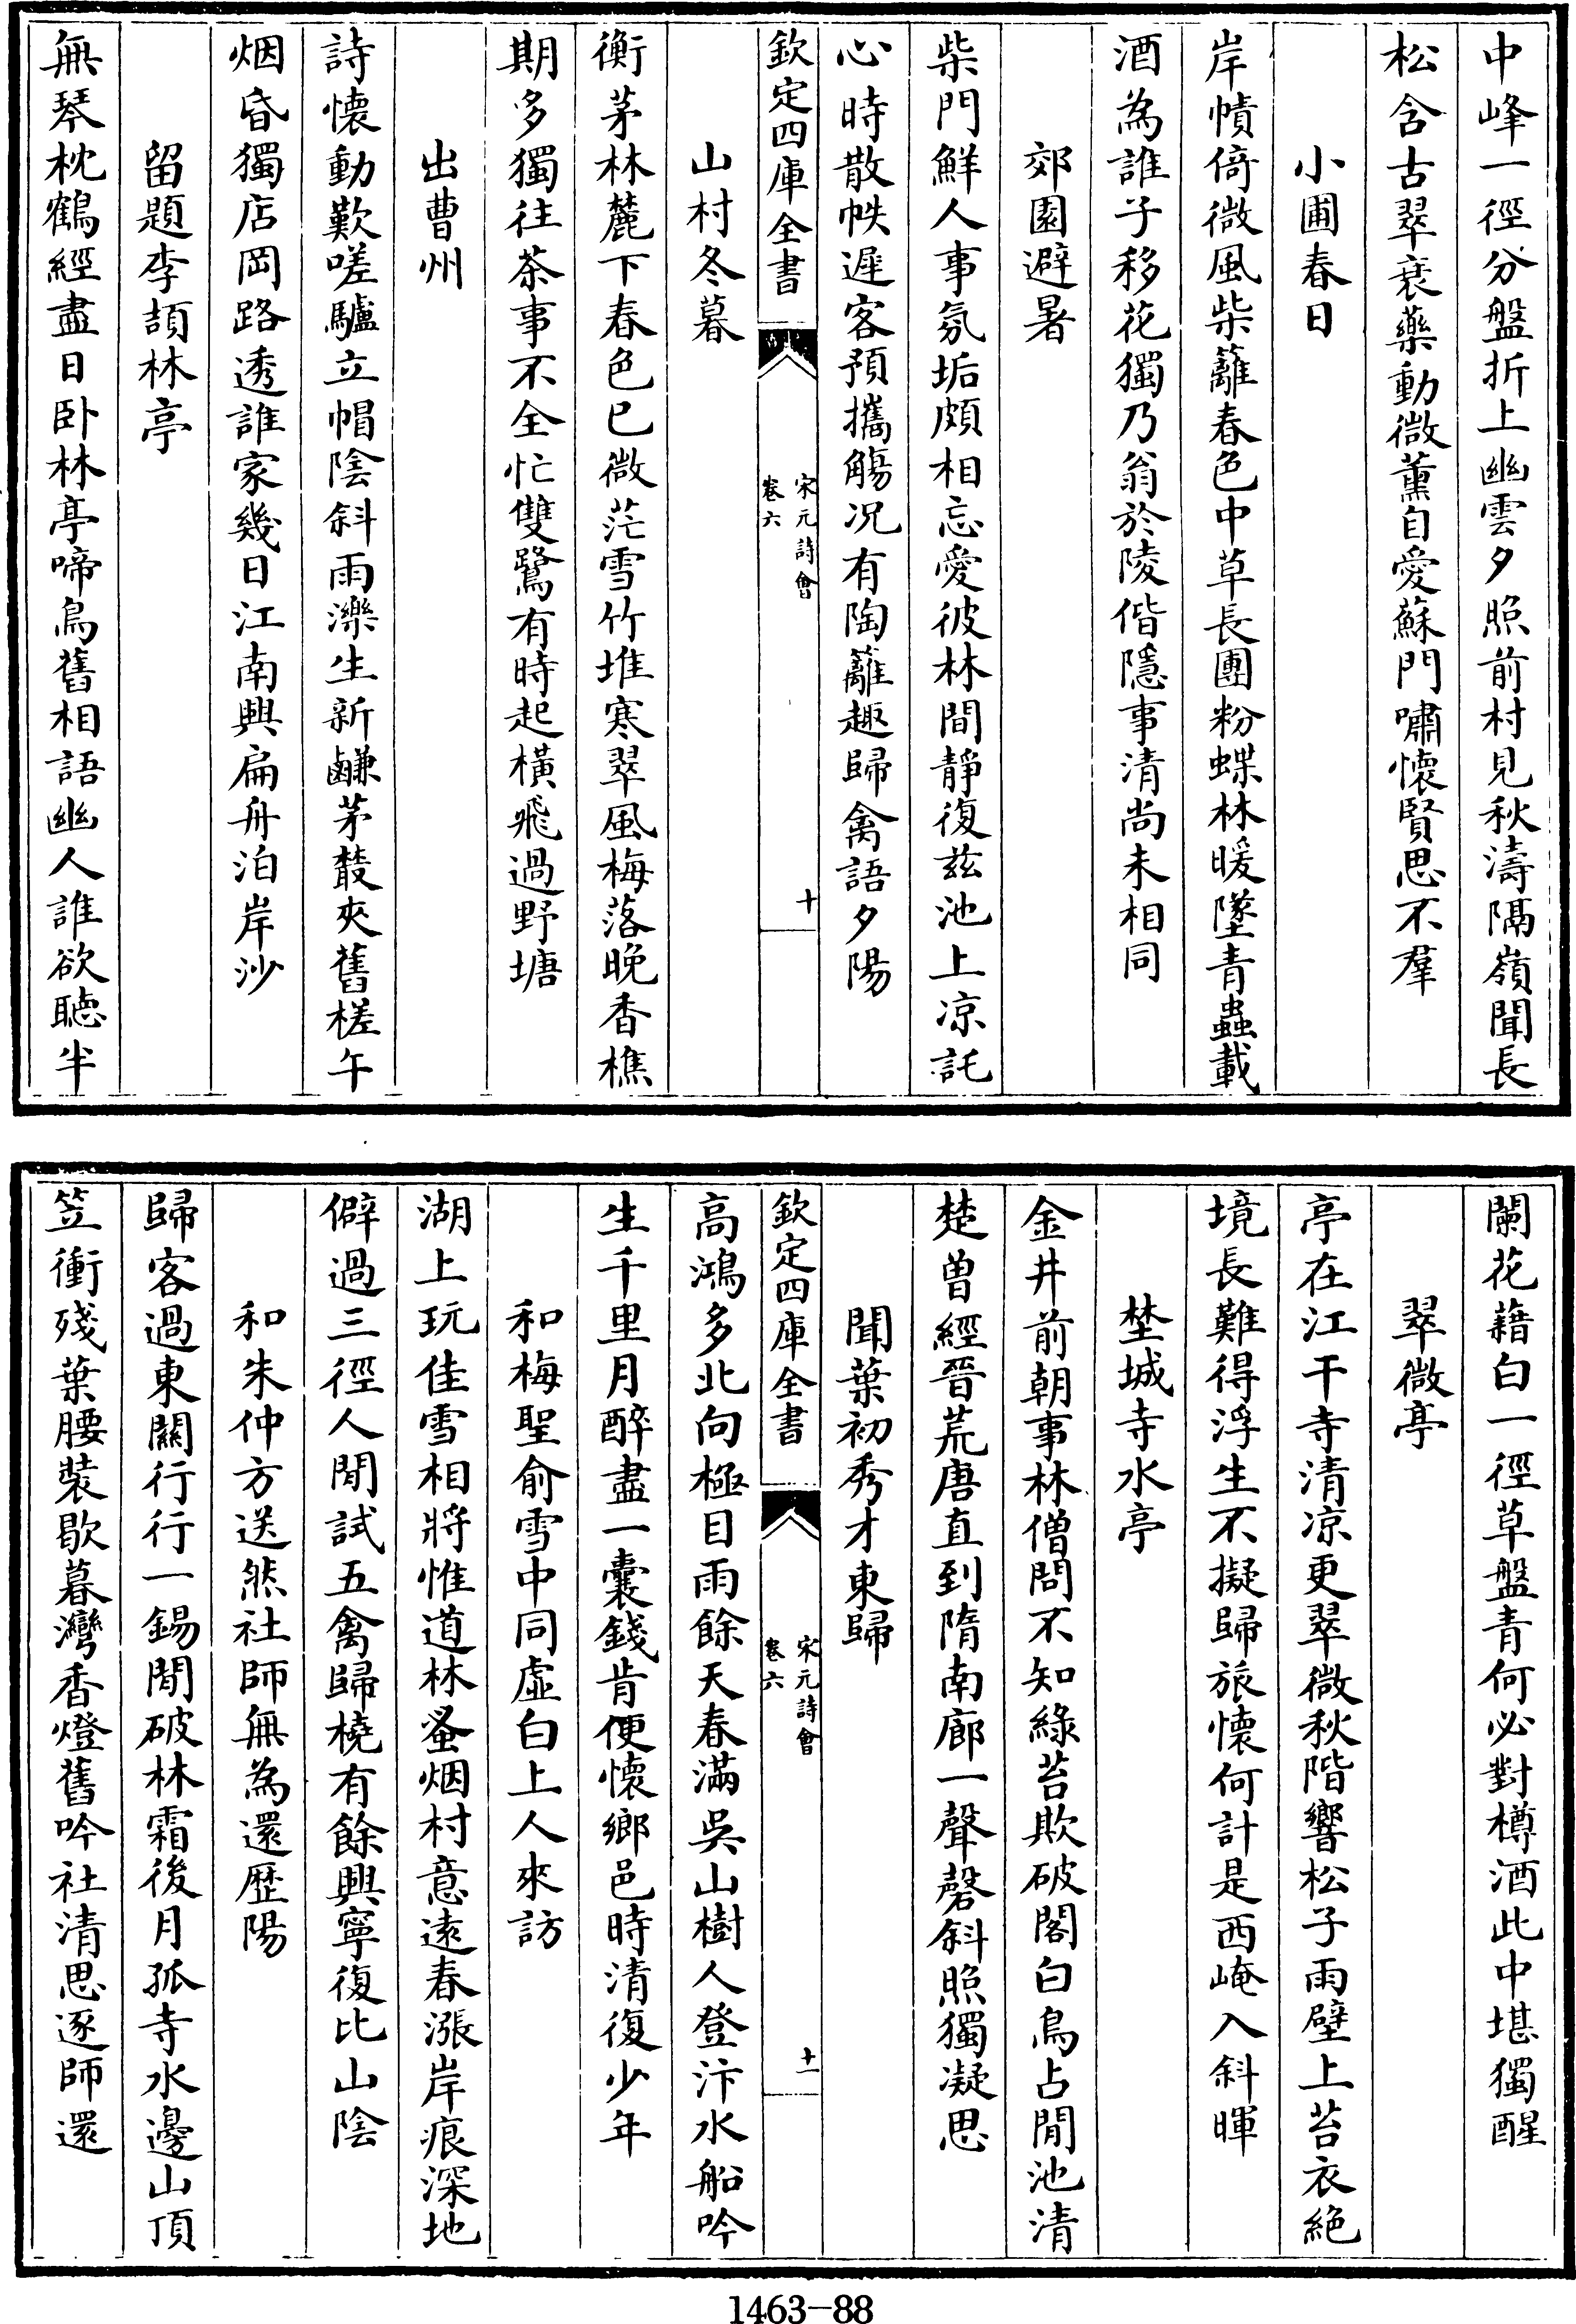 中峰一徑分盤折上幽雲夕照前村見秋濤隔嶺聞長
松含古翠衰藥動微薰自愛蘇門嘯懷賢思不羣
小圃春日
岸幘倚微風柴籬春色中草長團粉蝶林暖墜青蟲載
酒為誰子移花獨乃翁於陵偕隱事清尚未相同
郊園避暑
柴門鮮人事氛垢頗相忘愛彼林間靜復茲池上凉託
心時散帙遲客預攜觴况有陶籬趣歸禽語夕陽
欽定四庫全書
宋元詩會
卷六
十
山村冬暮
衡茅林麓下春色已微茫雪竹堆寒翠風梅落晚香樵
期多獨往茶事不全忙雙鷺有時起橫飛過野塘
出曹州
詩懷動歎嗟驢立帽陰斜雨濼生新鹻茅叢夾舊槎午
烟昏獨店岡路透誰家幾日江南興扁舟泊岸沙
留題李頡林亭
無琴枕鶴經盡日卧林亭啼鳥舊相語幽人誰欲聽半
闌花藉白一徑草盤青何必對樽酒此中堪獨醒
翠微亭
亭在江干寺清凉更翠微秋階響松子雨壁上苔衣絶
境長難得浮生不擬歸旅懷何計是西崦入斜暉
埜城寺水亭
金井前朝事林僧問不知綠苔欺破閣白鳥占閒池清
楚曾經晉荒唐直到隋南廊一聲磬斜照獨凝思
聞葉初秀才東歸
欽定四庫全書
宋元詩會
卷六
十一
高鴻多北向極目雨餘天春滿吳山樹人登汴水船吟
生千里月醉盡一囊錢肯便懷鄉邑時清復少年
和梅聖俞雪中同虛白上人來訪
湖上玩佳雪相將惟道林蚤烟村意遠春漲岸痕深地
僻過三徑人閒試五禽歸橈有餘興寧復比山陰
和朱仲方送然社師無為還歷陽
歸客過東關行行一錫閒破林霜後月孤寺水邊山頂
笠衝殘葉腰裝歇暮灣香燈舊吟社清思逐師還
1463-88